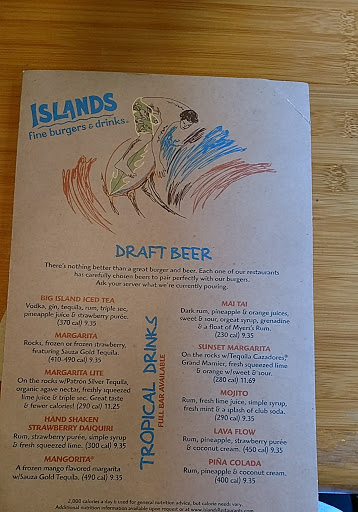 ISLANDS
fine burgers & drinks®
DRAFT BEER
There's nothing better than a great burger and beer. Each one of our restaurants
has carefully chosen beers to pair perfectly with our burgers.
Ask your server what we're currently pouring.
BIG ISLAND ICED TEA
Vodka, gin, tequila, rum, triple sec,
pineapple juice & strawberry purée.
(370 cal) 9.35
MARGARITA
Rocks, frozen or frozen strawberry,
featuring Sauza Gold Tequila.
(410-490 cal) 9.35
MARGARITA LITE
On the rocks w/Patrón Silver Tequila,
organic agave nectar, freshly squeezed
lime juice & triple sec. Great taste
& fewer calories! (290 cal) 11.25
HAND SHAKEN
STRAWBERRY DAIQUIRI
Rum, strawberry purée, simple syrup
& fresh squeezed lime. (300 cal) 9.35
MANGORITA®
A frozen mango flavored margarita
w/Sauza Gold Tequila. (490 cal) 9.35
TROPICAL DRINKS
FULL BAR AVAILABLE
MAI TAI
Dark rum, pineapple & orange juices,
sweet & sour, orgeat syrup, grenadine
& a float of Myers's Rum.
(230 cal) 9.35
SUNSET MARGARITA
On the rocks w/Tequila Cazadores®,
Grand Marnier, fresh squeezed lime
& orange w/sweet & sour.
(280 cal) 11.69
MOJITO
Rum, fresh lime juice, simple syrup,
fresh mint & a splash of club soda.
(290 cal) 9.35
LAVA FLOW
Rum, pineapple, strawberry purée
& coconut cream. (450 cal) 9.35
PIÑA COLADA
Rum, pineapple & coconut cream.
(400 cal) 9.35
2,000 calories a day is used for general nutrition advice, but calorie needs vary.
Additional nutrition information available upon request or at www.IslandsRestaurants.com